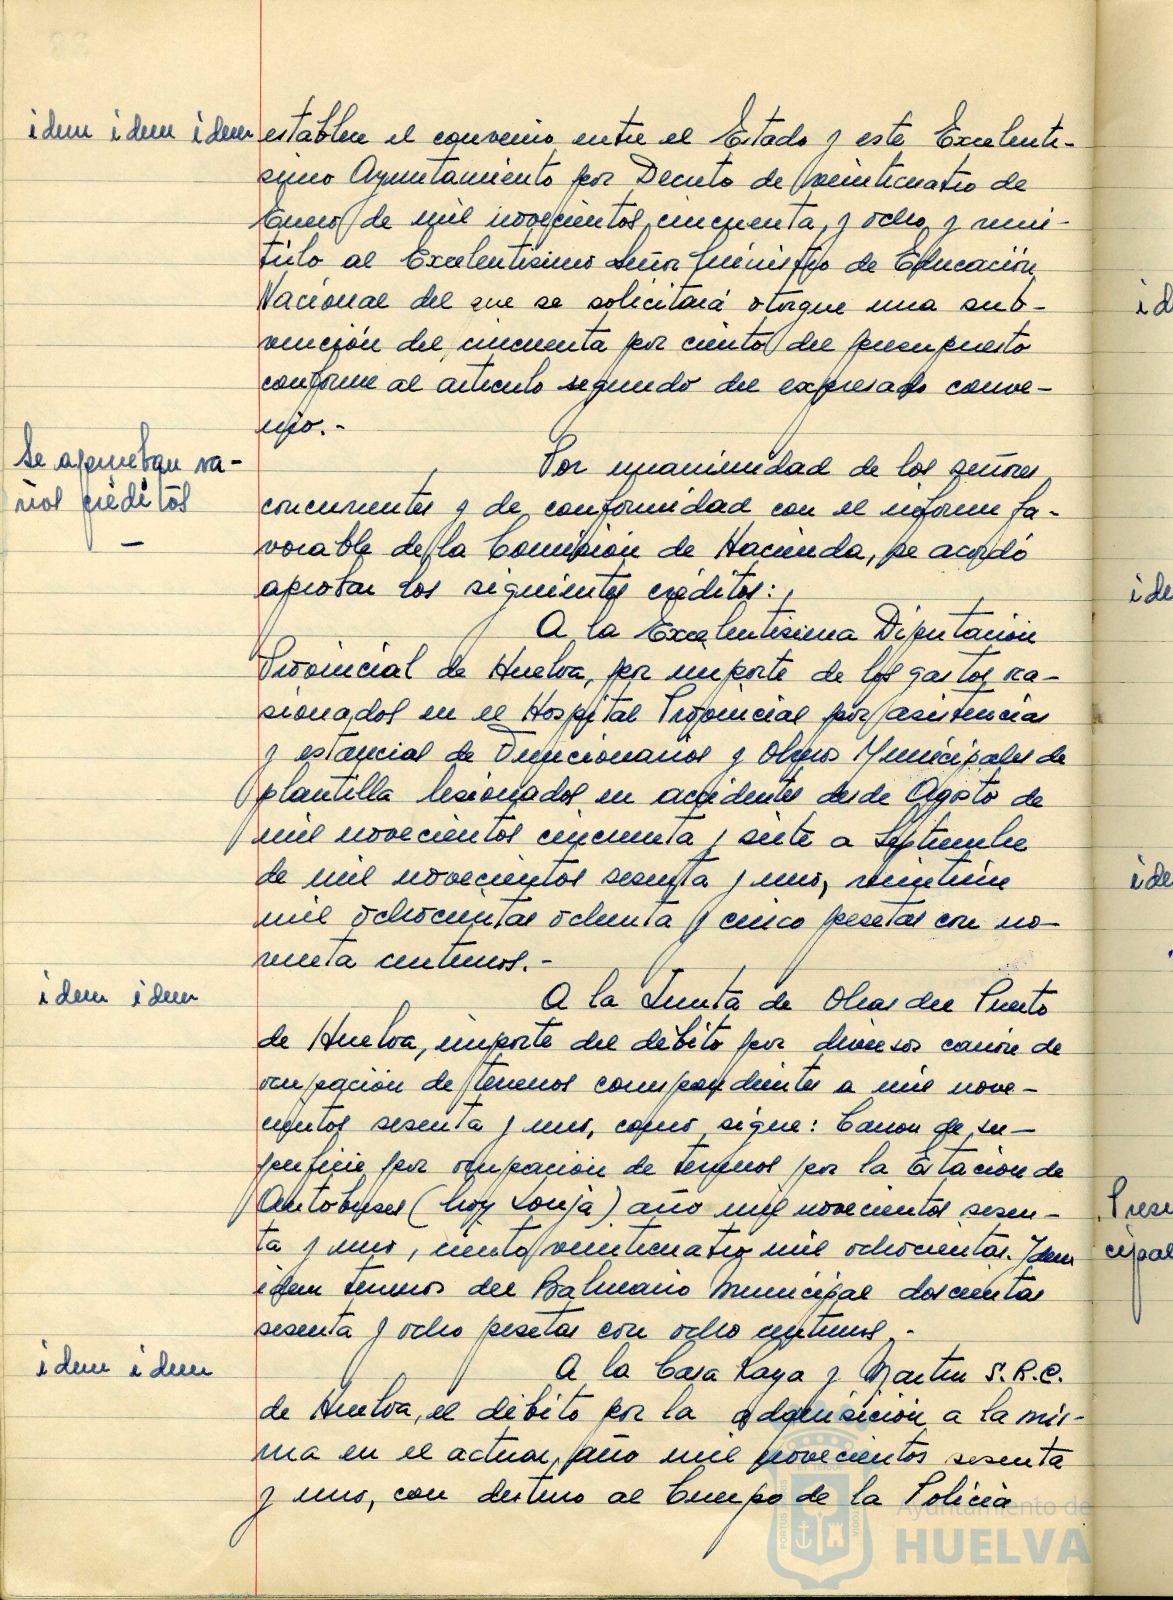 idem idem idem
establece el convenio entre el Estado y este Excelentí-
simo Ayuntamiento por Decreto de veinticuatro de
Enero de mil novecientos cincuenta y ocho y remi-
tirlo al Excelentísimo Señor Ministro de Educación
Nacional del que se solicitará otorgue una sub-
vención del cincuenta por ciento del presupuesto
conforme al artículo segundo del expresado conve-
nio.-
Se aprueban va-
rios créditos
Por unanimidad de los señores
concurrentes y de conformidad con el informe fa-
vorable de la Comisión de Hacienda, se acordó
aprobar los siguientes créditos:
A la Excelentísima Diputación
Provincial de Huelva, por importe de los gastos oca-
sionados en el Hospital Provincial por asistencias
y estancias de Funcionarios y Obreros Municipales de
plantilla lesionados en accidentes desde Agosto de
mil novecientos cincuenta y siete a Septiembre
de mil novecientos sesenta y uno, veintiun
mil ochocientas ochenta y cinco pesetas con no-
venta centimos.-
idem idem
A la Junta de Obras del Puerto
de Huelva, importe del débito por diversos canon de
ocupación de terrenos correspondientes a mil nove-
cientos sesenta y uno, como sigue: Canon de su-
perficie por ocupación de terrenos por la Estación de
Autobuses (hoy Lonja) año mil novecientos sesen-
ta y uno, ciento veinticuatro mil ochocientas. Idem
idem terrenos del Balneario Municipal doscientas
sesenta y ocho pesetas con ocho centimos.-
idem idem
A la Casa Raya y Martin S.R.C.
de Huelva, el débito por la adquisición a la mis-
ma en el actual año mil novecientos sesenta
y uno, con destino al Cuerpo de la Policía
id
ide
ide
Prese
cipal
PORTUS
Ayuntamiento de
HUELVA